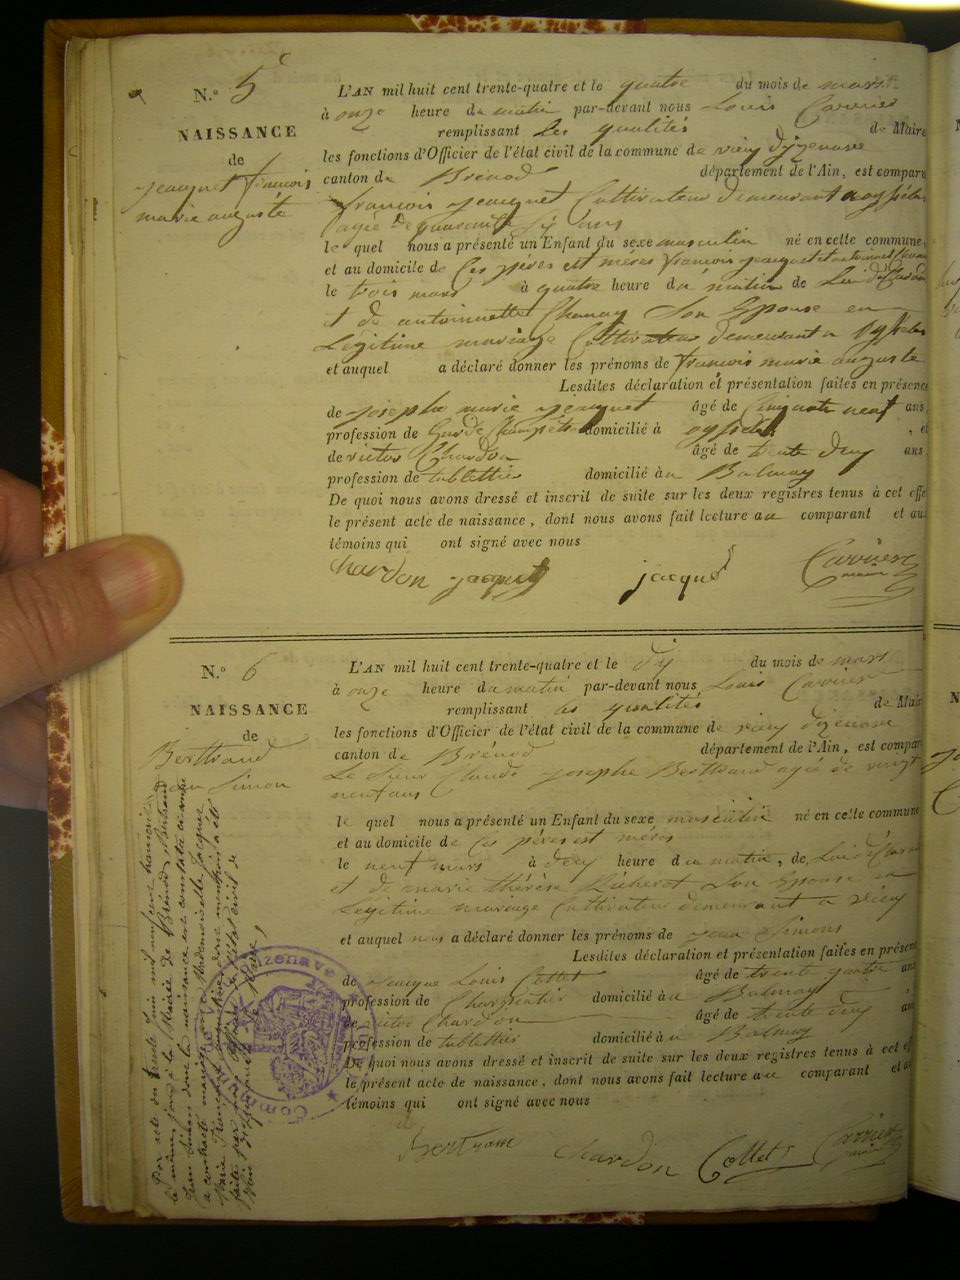 N.° 5
NAISSANCE
de
Jacquet françois
marie auguste
L'AN mil huit cent trente-quatre et le quatre du mois de mars
à onze heure du matin par-devant nous Louis Carrier
remplissant les qualités de Maire
les fonctions d'Officier de l'état civil de la commune de vieu dizenave
canton de Brénod département de l'Ain, est comparu
françois Jacquet Cultivateur demeurant a
agée de quarante ans
le quel nous a présenté un Enfant du sexe masculin né en cette commune,
et au domicile de ses pères est mères françois Jacquet et antoinette Chanay
le trois mars à quatre heure du matin de Lui déclarant
et de antoinnette Chanay Son Epouse en
Légitime mariage Cultivateur demeurant a
et auquel a déclaré donner les prénoms de françois marie auguste
Lesdites déclaration et présentation faites en présence
de Josephe marie Jacquet âgé de Cinquante neuf ans,
profession de Garde Champêtre domicilié à , et
de victor Chardon âgé de trente deux ans.
profession de tablettier domicilié à Balmay
De quoi nous avons dressé et inscrit de suite sur les deux registres tenus à cet effe
le présent acte de naissance, dont nous avons fait lecture au comparant et au
témoins qui ont signé avec nous
Chardon Jacquet jacque Carrier
maire
N.° 6
NAISSANCE
de
Berttrand
Jean Simon
L'AN mil huit cent trente-quatre et le dix du mois de mars
à onze heure du matin par-devant nous Louis Carrier
remplissant les qualités de Mair
les fonctions d'Officier de l'état civil de la commune de vieu dizenave
canton de Brénod département de l'Ain, est compar
Le Sieur Claude Josephe Berttrand agée de vingt
neuf ans
le quel nous a présenté un Enfant du sexe masculin né en cette commune
et au domicile de ses pères est mères
le neuf mars à deux heure du matin, de Lui déclarant
et de marie thérèse Richerot Son Epouse en
Légitime mariage Cultivateur demeurant a vieu
et auquel nous a déclaré donner les prénoms de Jean Simons
Lesdites déclaration et présentation faites en présen
de Jacque Louis Collet âgé de trente quatre ans
profession de Charpentier domicilié à Balmay
de victor Chardon âgé de trente deux an
profession de tablettier domicilié à Balmay
De quoi nous avons dressé et inscrit de suite sur les deux registres tenus à cet ef
le présent acte de naissance, dont nous avons fait lecture au comparant et a
témoins qui ont signé avec nous
Bertrand Chardon Collet Carrier
maire
Par acte du trente Juin mil neuf cent
le même jour à la Mairie de Brénod, Bertrand
Jean Simon dont la naissance est constatée ci-contre
a contracté mariage avec Mademoiselle Jacquet
Marie Françoise dont mention a été
faite par nous l'état civil de